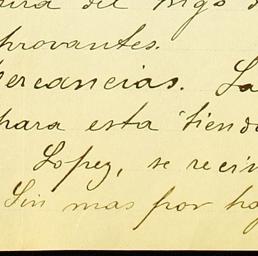 del trigo d
provantes.
mercancias. La
para esta tienda
Lopez, se reciv
Sin mas por ho